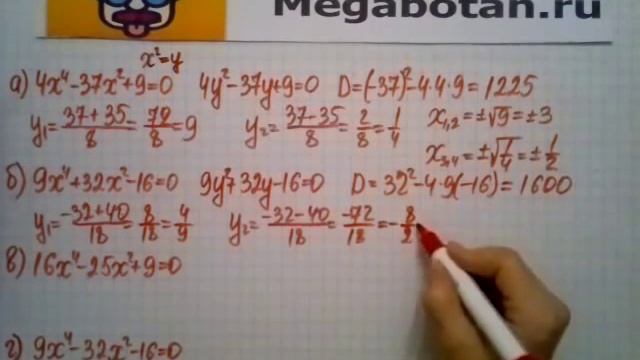 Megabotan.ru
x²=y
а) 4x⁴-37x²+9=0 4y²-37y+9=0 D=(-37)²-4·4·9=1225
y₁=37+35/8=72/8=9 y₂=37-35/8=2/8=1/4 x₁,₂=±√9=±3
x₃,₄=±√1/4=±1/2
б) 9x⁴+32x²-16=0 9y²+32y-16=0 D=32²-4·9(-16)=1600
y₁=-32+40/18=8/18=4/9 y₂=-32-40/18=-72/18=-8/2
в) 16x⁴-25x²+9=0
г) 9x⁴-32x²-16=0